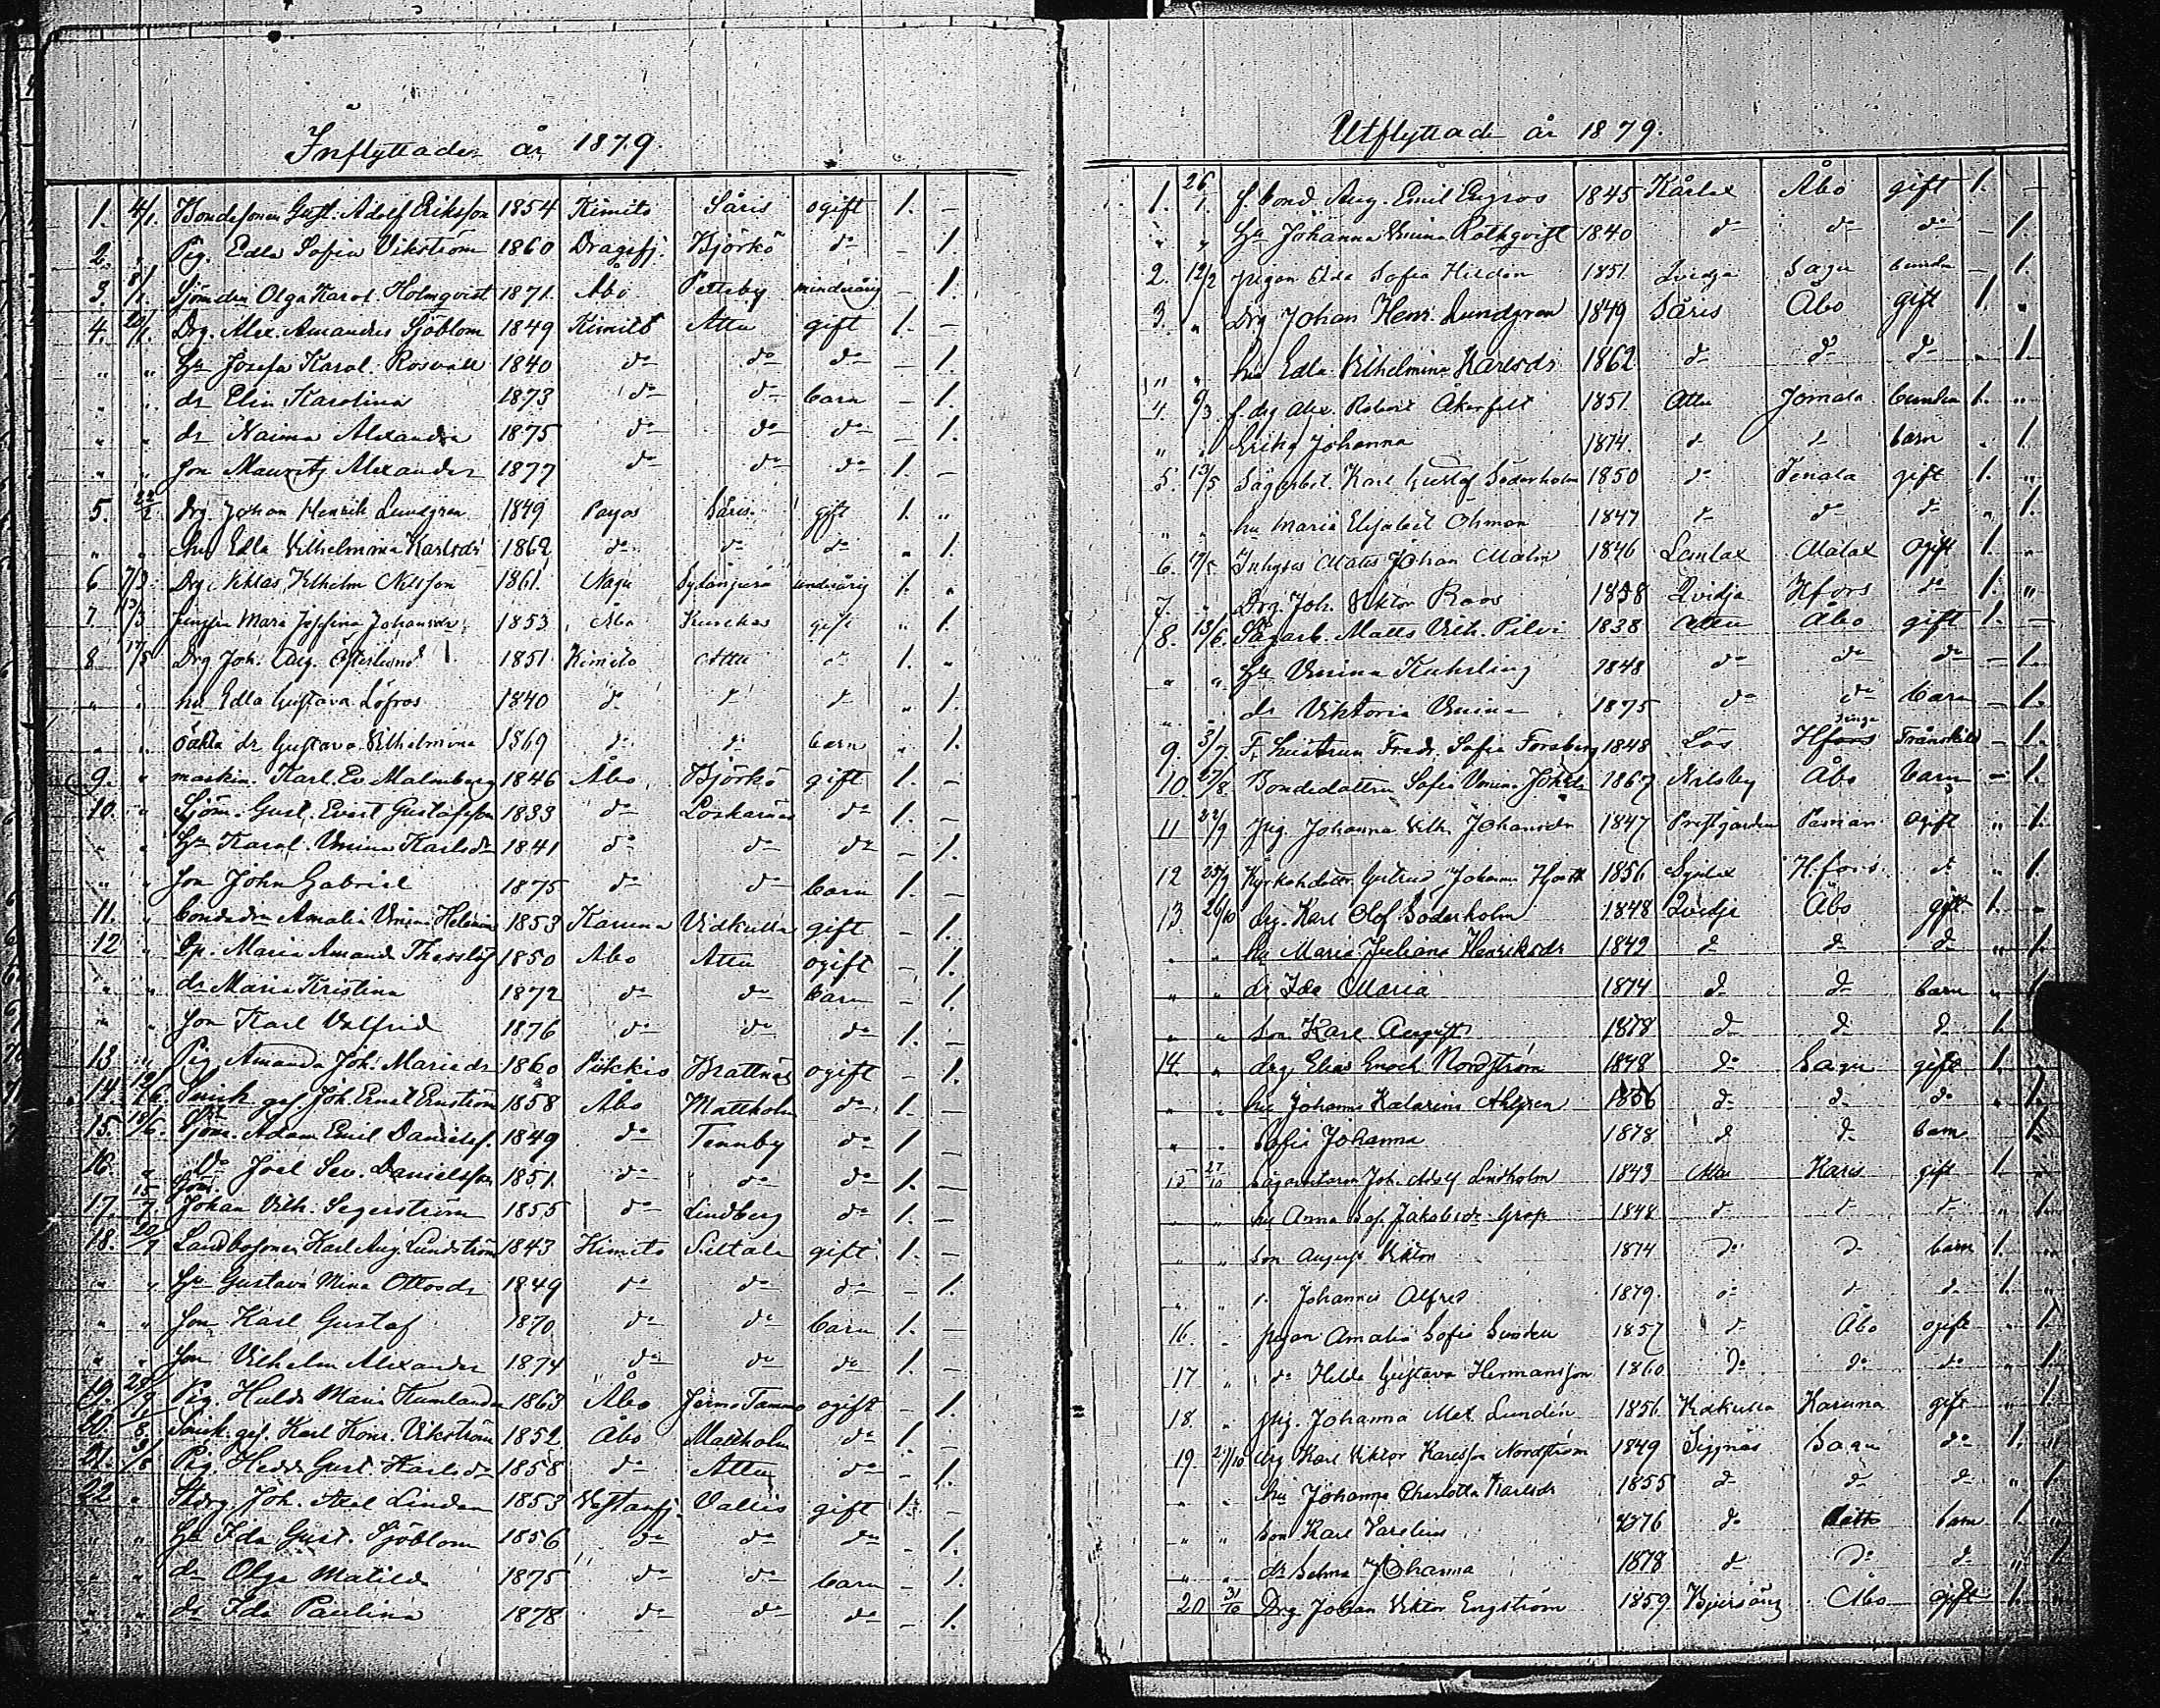 Inflyttade år 1879.
1. 4/1. Bondesonen Gust. Adolf Eriksson 1854 Kimito Såris ogift 1. –
2. " Pig. Edla Sofia Vikström 1860 Dragsfj. Björkö do – 1.
3. 8/1. Sjöm.dr Olga Karol. Holmqvist 1871. Åbo Petteby minderårig – 1.
4. 20/1. Drg. Alex. Amandus Sjöblom 1849 Kimito Attu gift 1. –
" " Hu Josefa Karol. Rosvall 1840 do do do – 1.
" " dr Elin Karolina 1873 do do barn – 1.
" " dr Naima Alexandra 1875 do do do – 1.
" " son Mauritz Alexander 1877 do do do 1. –
5. 22/2 Drg Johan Henrik Lundgren 1849 Pargas Såris gift 1. "
" " hu Edla Vilhelmina Karlsdr 1862 do do do " 1.
6 7/3 Drg. Niklas Vilhelm Nilsson 1861. Nagu minderårig 1. "
7 13/3 Maria Josefina Johansdr 1853 Åbo gift " 1.
8 17/5 Drg Joh. Aug. Österlund 1851 Kimito Attu d 1. "
" " hu Edla Gustava Löfros 1840 d d d " 1.
" " oäkta dr Gustava Vilhelmina 1869 d d barn " 1.
9. " maskin. Karl. Ev. Malmberg 1846 Åbo Björkö gift 1. –
10. " Sjöm. Gust. Evert Gustafsson 1833 do Loskarnäs do 1. –
" " Hu Karol. Vmina Karlsdr 1841 do do do – 1.
" " son John Gabriel 1875 do do barn 1. –
11. " bondedrn Amalia Vmina Helenius 1853 Karuna Vidkulla gift – 1.
12 " Maria Amanda Thesslöf 1850 Åbo Attu ogift – 1.
" " dr Maria Kristina 1872 do do barn – 1.
" " son Karl Valfrid 1876 do do do 1. –
13. " Pig Amanda Joh. Mariedr 1860 Piikkio Brattnäs ogift – 1.
14. 12/6. Snick. ges. Joh. Ernst Enström 1858 Åbo Mattholm do 1. –
15. 18/6. Sjöm. Adam Emil Danielss. 1849 do Tennby do 1. –
16. " Do Joel Sev. Danielsson 1851. do do do 1. –
17. 15/7. Sjöm. Johan Vilh. Segerström 1855 do Lindberg do 1. –
18. 20/7 Landbosonen Karl Aug. Lundström 1843 Kimito Sultala gift 1. –
" " Hu Gustava Mina Ottosdr 1849 do do do – 1.
" " Son Karl Gustaf 1870 do do barn 1. –
" " son Vilhelm Alexander 1874 do do do 1. –
19. Pig. Hulda Maria Kumlander 1863 Åbo Jermo Tammo ogift – 1.
20. Snick. ges. Karl Konr. Vikström 1852. Åbo Mattholm do 1. –
21. Pig. Hedda Gust. Karlsdr 1858 do Attu do – 1.
22. " Joh. Axel Lindan 1853 Vestanfj. Vallis gift 1. –
" " Hu Ida Gust. Sjöblom 1856 do do do – 1.
" " dr Olga Matilda 1875 do do barn – 1.
" " dr Ida Paulina 1878 do do do – 1.
Utflyttade år 1879.
1. 26/1. f. bond. Aug. Emil Engros 1845 Kårlax Åbo gift 1. –
" " Hu Johanna Vmina Rothqvist 1840 do do do – 1.
2. 12/2 pigan Elda Sofia Hildén 1851. Qvidja Sagu – 1.
3. " Drg Johan Henr. Lundgren 1849 Såris Åbo gift 1. "
" " hu Edla Vilhelmina Karlsdr 1862 do do do " 1
4. 6/3. f. drg Alex. Robert Åkerfelt 1851. Attu Jomala 1. "
" " Erika Johanna 1874. d d barn " 1.
5. 13/5 Sågarbet. Karl Gustaf Söderholm 1850 do Tenala gift 1. "
" " hu Maria Elisabet Öhman 1847 d do d " 1.
6. 17/5 Inhyses Matts Johan Malm 1846 Lemlax Malax ogift 1. "
7. " Drg. Joh. Viktor Roos 1858 Qvidja Hfors do 1. "
8. 13/6. Sågarb. Matts Vilh. Pilvi 1838 Attu Åbo gift 1. –
" " Hu Vmina Kuhrling 1848 do do do – 1.
" " dr Viktoria Vmina 1875 do do barn – 1.
9. 3/7. F. hustrun Fredr. Sofia Forsberg 1848 Lös Hfors Frånskild – 1.
10. 27/8. Bondedottren Sofia Vmina Johdr 1867 Nilsby Åbo barn – 1.
11 22/9 Pig. Johanna Vilh. Johansdr 1847 Prestgården Pemar ogift " 1.
12 25/9 Gertrud Johanna Hjorth 1856 Hfors d " 1.
13. 26/10 drg. Karl Olof Söderholm 1848 Qvidja Åbo gift 1. "
" " hu Maria Juliana Henriksdr 1842 d d d " 1.
" " dr Ida Maria 1874 d d barn " 1.
" " son Karl August 1878 d d d 1. "
14. " drg Elias Enoch Nordström 1848 do Sagu gift 1. "
" " hu Johanna Katarina Ahlgren 1856 d d d " 1.
" " Sofia Johanna 1878 d d barn 1.
15 27/10 Sågarbetaren Joh. Adolf Lindholm 1843 Attu Karis gift 1. "
" " hu Anna Sof. Jakobsdr Grop 1848 d d d " 1.
" " son August Viktor 1874 do d barn 1. "
" " s. Johannes Alfred 1879. d d d 1. "
16. " pigan Amalia Sofia 1857 d Åbo ogift " 1.
17 " do Hilda Gustava Hermansson 1860 do do do " 1.
18. " pig. Johanna Mat. Lundén 1856 Vidkulla Karuna gift " 1.
19 29/10 drg Karl Viktor Karlsson Nordström 1849 Siggnäs Sagu do 1. "
" " hu Johanna Charlotta Karlsdr 1855 d d d " 1.
" " son Karl Varelius 1876 do barn 1. "
" " dr Selma Johanna 1878 d do d " 1.
20 31/10 Drg. Johan Viktor Engström 1859 Åbo ogift 1. "